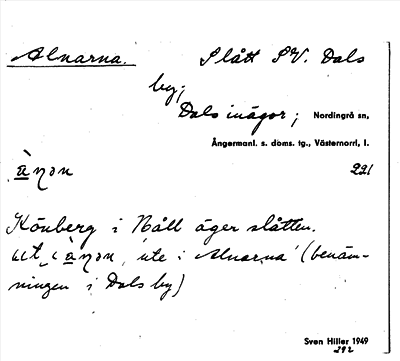 Alnarna. Slått SV. Dals
by;
Dals inägor; Nordingrå sn,
Ångermanl. s. doms. tg., Västernorrl, l.
221
Könberg i Båll äger slåtten.
ute i Alnarna' (benäm-
ningen i Dals by)
Sven Hiller 1949
292